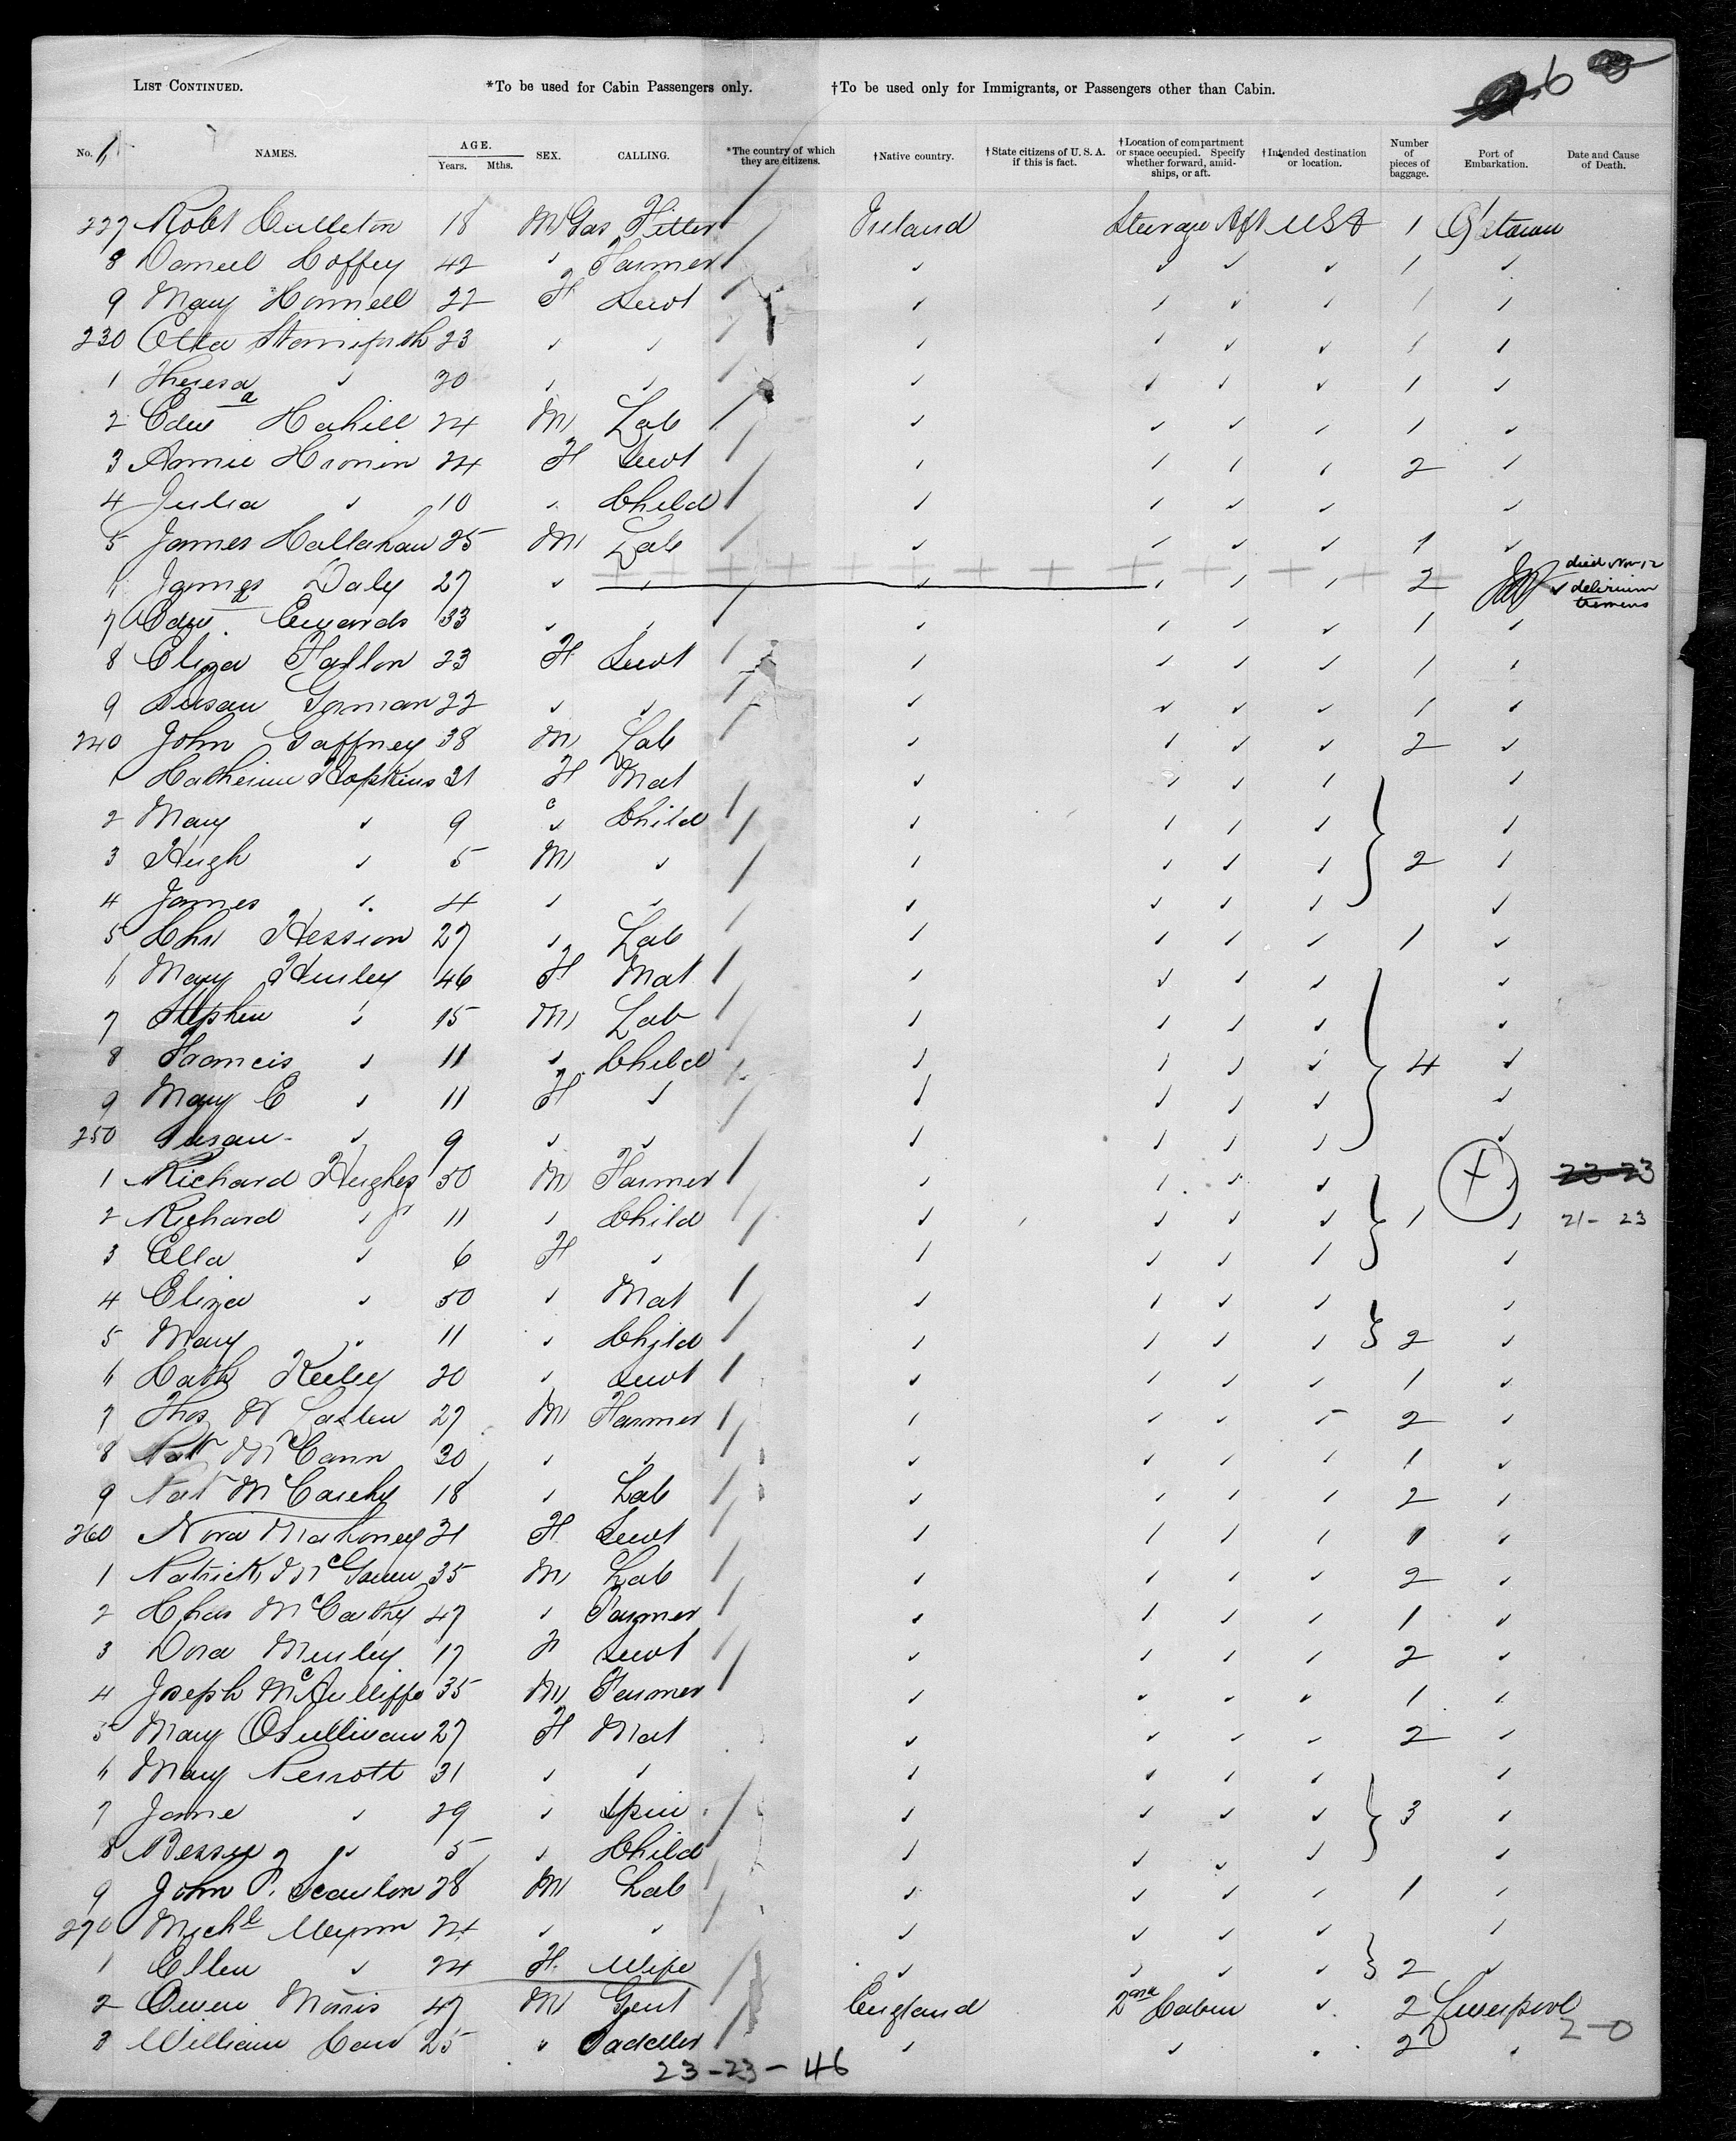 LIST CONTINUED. *To be used for Cabin Passengers only. †To be used only for Immigrants, or Passengers other than Cabin. 6
No. NAMES. AGE. Years. Mths. SEX. CALLING. *The country of which they are citizens. †Native country. †State citizens of U. S. A. if this is fact. †Location of compartment or space occupied. Specify whether forward, amidships, or aft. †Intended destination or location. Number of pieces of baggage. Port of Embarkation. Date and Cause of Death.
227 Robt Culleton 18 M Gas Fitter Ireland Steerage Aft USA 1 Q'stown
8 Daniel Coffey 42 " Farmer " " " " 1 "
9 Mary Connell 22 F Servt " " " " 1 "
230 Etta 23 " " " " " " 1 "
1 Theresa " 20 " " " " " " 1 "
2 Edw Cahill 24 M Lab " " " " 1 "
3 Annie Cronin 24 F Servt " " " " 2 "
4 Julia " 10 " Child " " " " "
5 James Callahan 25 M Lab " " " " 1 "
6 James Daly 27 " " " " " " 2 " died Nov 12 delirium tremens
7 Edw. Edwards 33 " " " " " " 1 "
8 Eliza Fallon 23 F Servt " " " " 1 "
9 Susan Gorman 22 " " " " " " 1 "
240 John Gaffney 38 M Lab " " " " 2 "
1 Catherine Hopkins 31 F Mat " " " " "
2 Mary " 9 " Child " " " " "
3 Hugh " 5 M " " " " " 2 "
4 James " 4 " " " " " " "
5 Chs Hession 27 " Lab " " " " 1 "
6 Mary Hurley 46 F Mat " " " " "
7 Stephen " 15 M Lab " " " " "
8 Francis " 11 " Child " " " " 4 "
9 Mary E " 11 F " " " " " "
250 Susan " 9 " " " " " " "
1 Richard Hughes 50 M Farmer " " " " " 23-23
2 Richard " 11 " Child " " " " 1 " 21-23
3 Ella " 6 F " " " " " "
4 Eliza " 50 " Mat " " " " "
5 Mary " 11 " Child " " " " 2 "
6 Cath Keeley 20 " Servt " " " " 1 "
7 Thos W 27 M Farmer " " " " 2 "
8 Pat McCann 30 " " " " " " 1 "
9 Pat McCarthy 18 " Lab " " " " 2 "
260 Nora Mahoney 21 F Servt " " " " 1 "
1 Patrick McGowen 35 M Lab " " " " 2 "
2 Chas McCarthy 47 " Farmer " " " " 1 "
3 Dora 17 F Servt " " " " 2 "
4 Joseph McAuliffe 35 M Farmer " " " " 1 "
5 Mary OSullivan 27 F Mat " " " " 2 "
6 Mary Perrott 31 " " " " " " "
7 Jane " 29 " Spin " " " " 3 "
8 Bessie " 5 " Child " " " " "
9 John P. Scanlon 28 M Lab " " " " 1 "
270 Michl 24 " " " " " " "
1 Ellen " 24 F Wife " " " " 2 "
2 Owen Morris 47 M Gent England 2nd Cabin " 2 Liverpool
3 William 25 " Saddler " " " 2 " 2-0
23-23-46